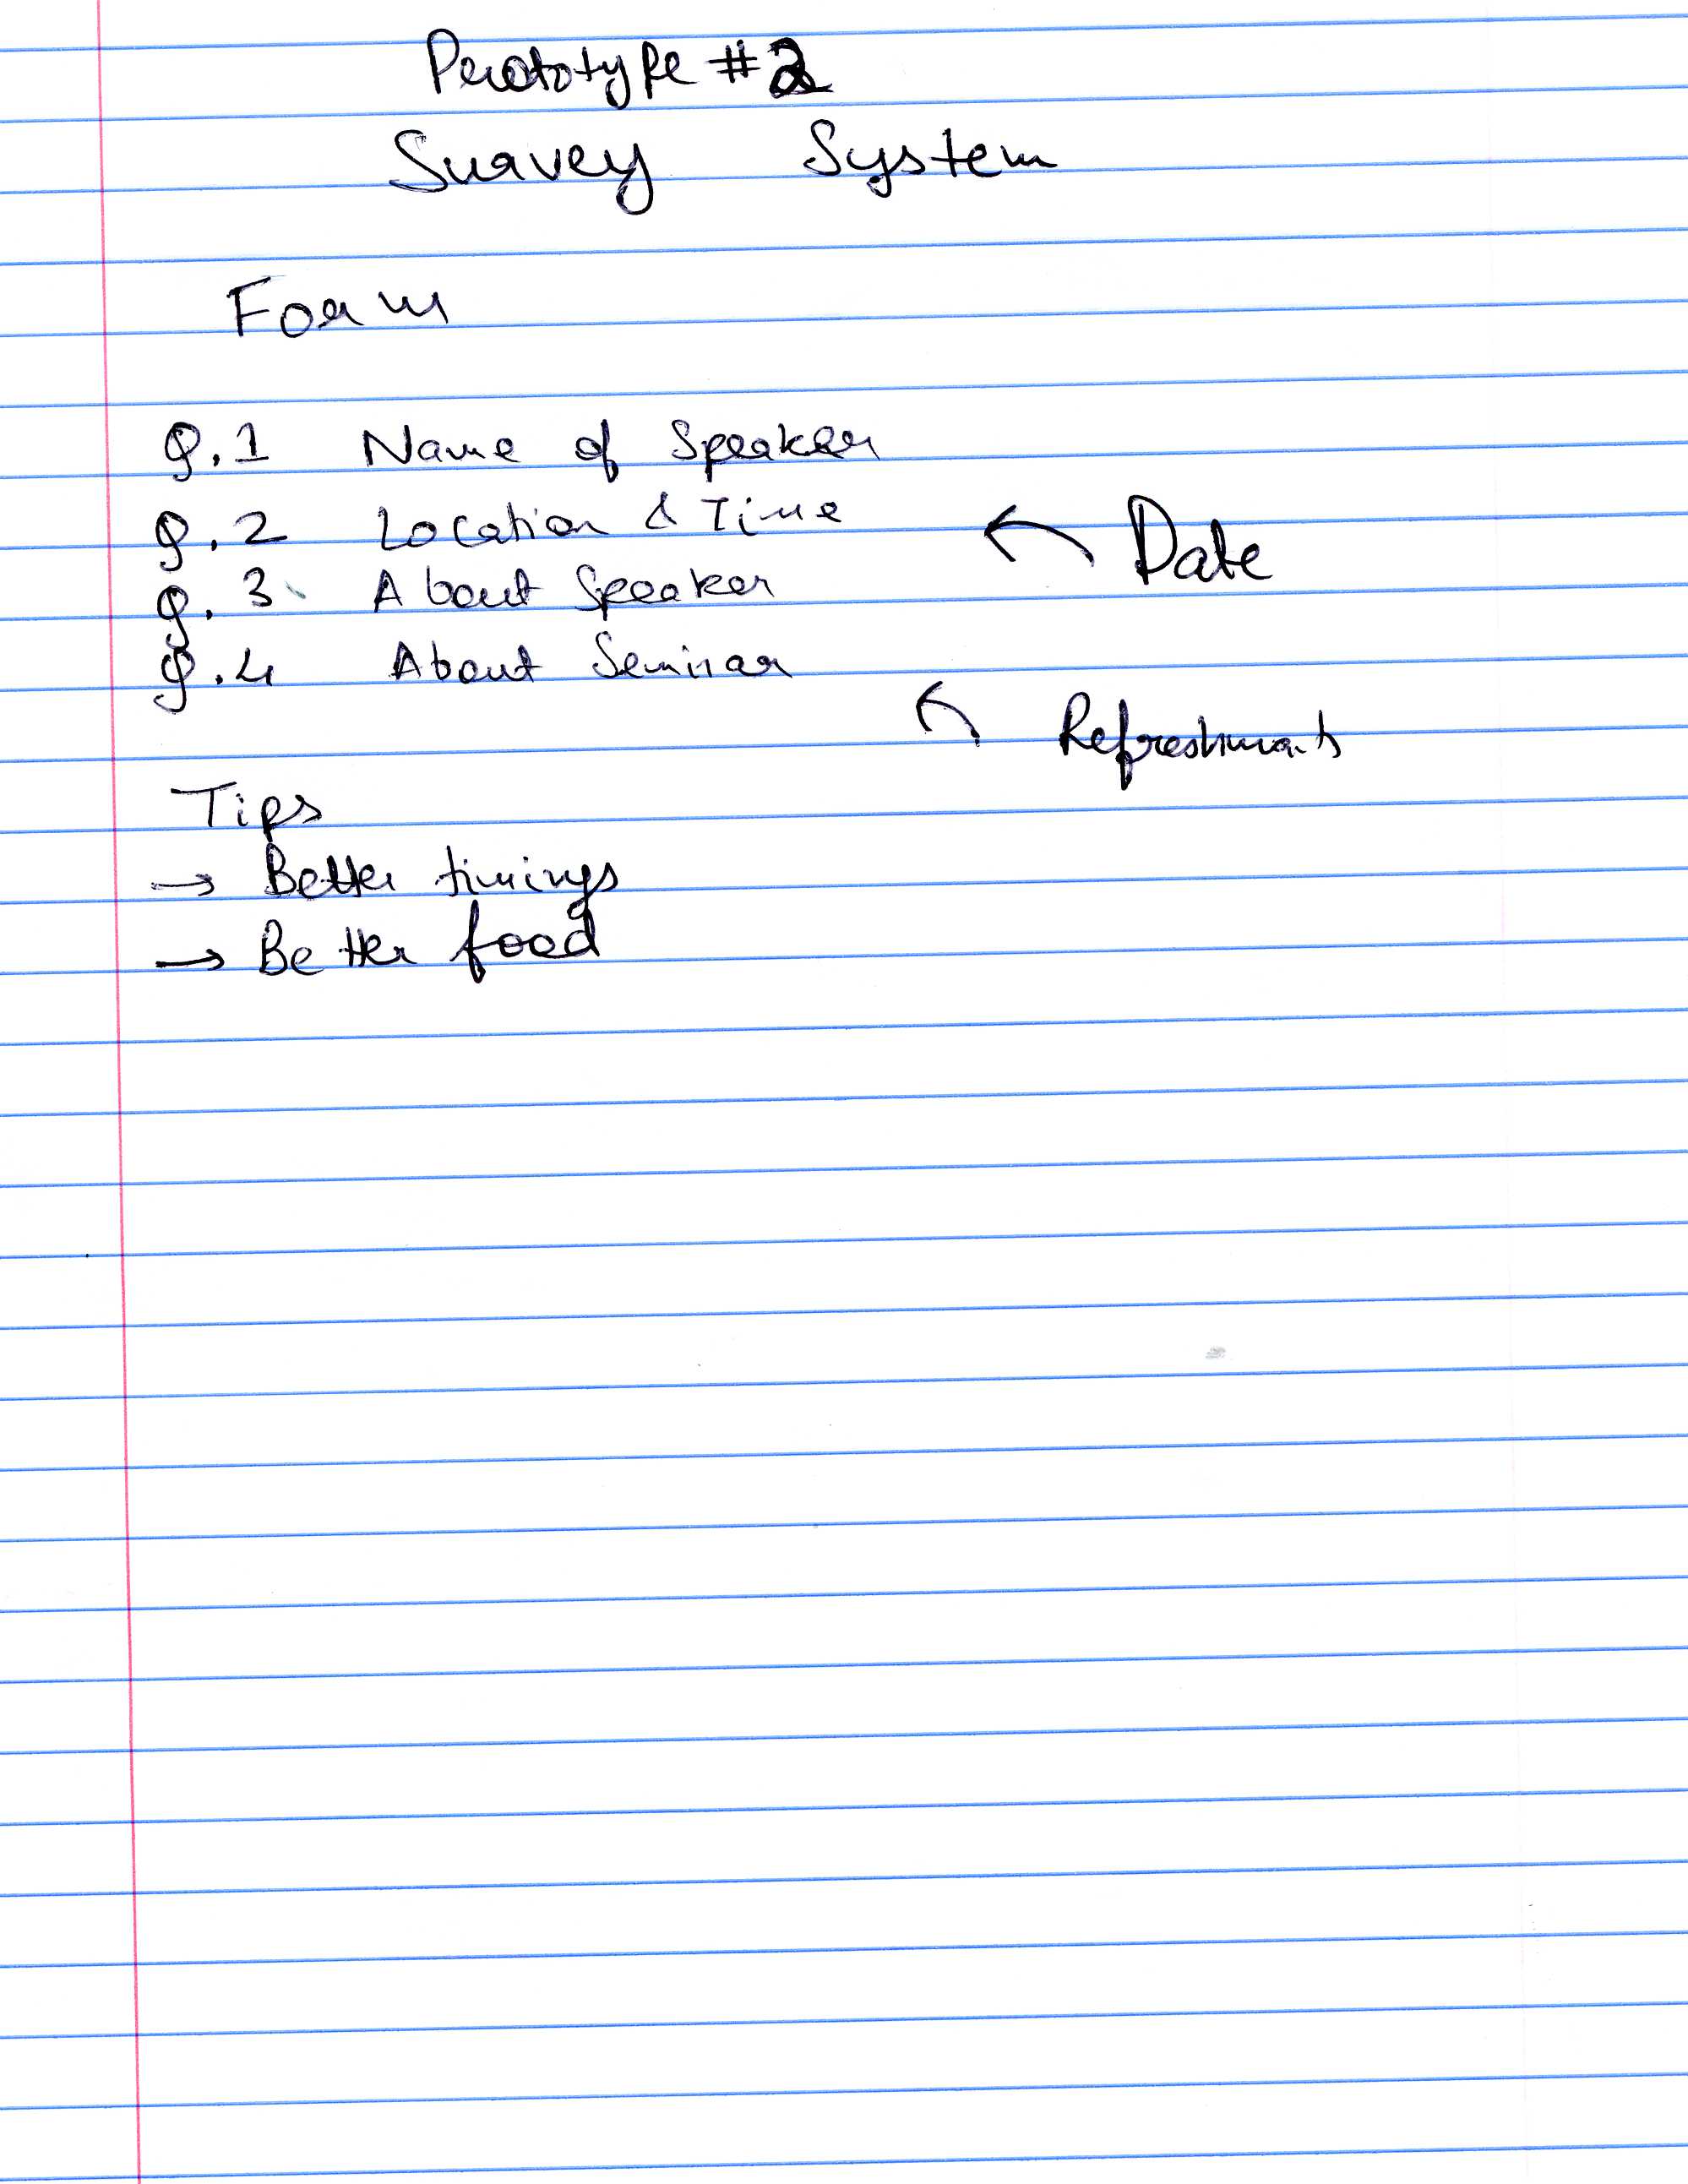 Prototype #2
Survey System
Form
Q.1 Name of Speaker
Q.2 Location & Time ← Date
Q.3 About Speaker
Q.4 About Seminar
← Refreshments
Tips
→ Better timings
→ Better food